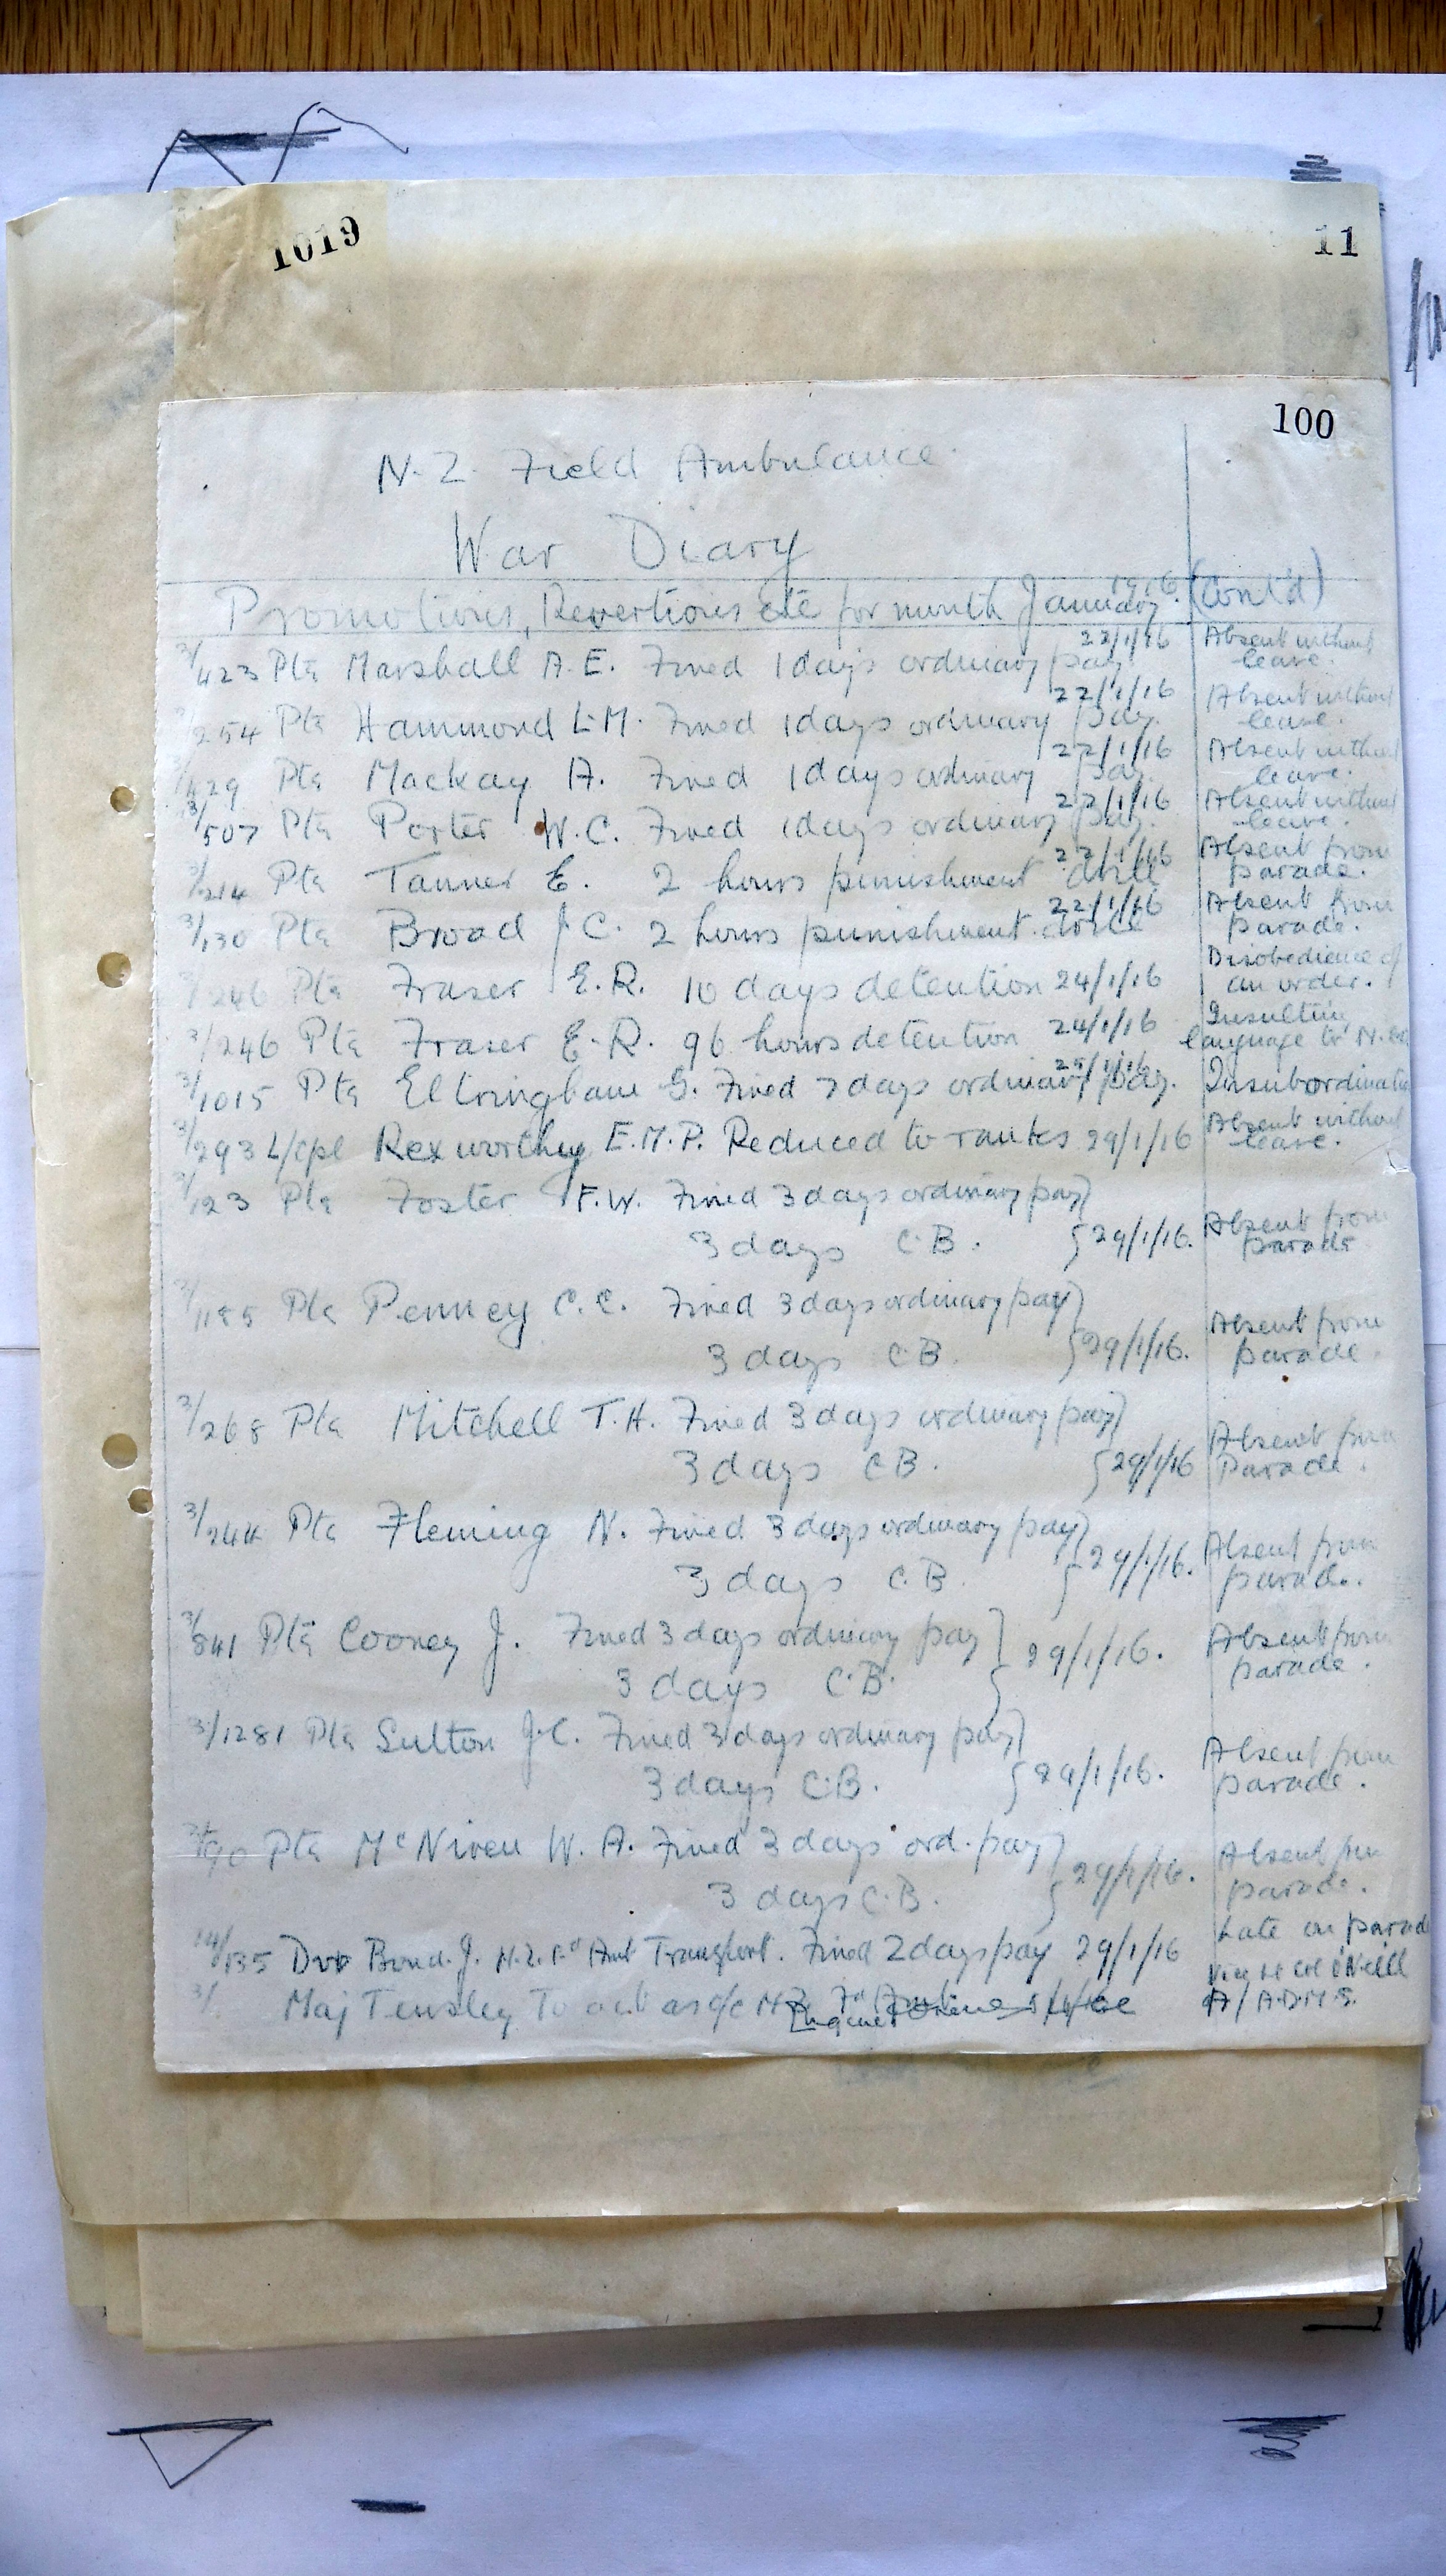 1019
11
100
N.Z. Field Ambulance.
War Diary
Promotions, Revertions etc for month January 1916. (Cont'd)
3/423 Pte Marshall A.E. Fined 1 days ordinary pay 22/1/16 Absent without leave.
3/254 Pte Hammond L.M. Fined 1 days ordinary pay. 22/1/16 Absent without leave.
3/429 Pte Mackay A. Fined 1 days ordinary pay. 22/1/16 Absent without leave.
3/507 Pte Porter W.C. Fined 1 days ordinary pay. 22/1/16 Absent without leave.
3/214 Pte Tanner E. 2 hours punishment drill 22/1/16 Absent from parade.
3/130 Pte Broad J.C. 2 hours punishment drill 22/1/16 Absent from parade.
3/246 Pte Fraser E.R. 10 days detention 24/1/16 Disobedience of an order.
3/246 Pte Fraser E.R. 96 hours detention 24/1/16 Insulting language to
3/1015 Pte Eltringham G. Fined 7 days ordinary pay. Insubordination
3/293 L/Cpl Rexworthy E.M.P. Reduced to ranks 29/1/16 Absent without leave.
3/123 Pte Foster F.W. Fined 3 days ordinary pay
3 days C.B. 29/1/16. Absent from parade
3/1185 Pte Penney C.C. Fined 3 days ordinary pay
3 days C.B. 29/1/16. Absent from parade
3/268 Pte Mitchell T.H. Fined 3 days ordinary pay
3 days C.B. 29/1/16 Absent from Parade.
3/244 Pte Fleming N. Fined 3 days ordinary pay
3 days C.B. 29/1/16. Absent from parade.
3/841 Pte Cooney J. Fined 3 days ordinary pay
3 days C.B. 29/1/16. Absent from parade.
3/1281 Pte Sutton J.C. Fined 3 days ordinary pay
3 days C.B. 29/1/16. Absent from parade.
Pte McNiven W.A. Fined 3 days ord. pay
3 days C.B. 29/1/16. Absent from parade.
14/135 Dvr Bond. J. N.Z. Fd Amb Transport. Fined 2 days pay 29/1/16 Late on parade
3/ Maj Tewsley To act as O/C N.Z. Fd Amb O'Neill
A/A.D.M.S.